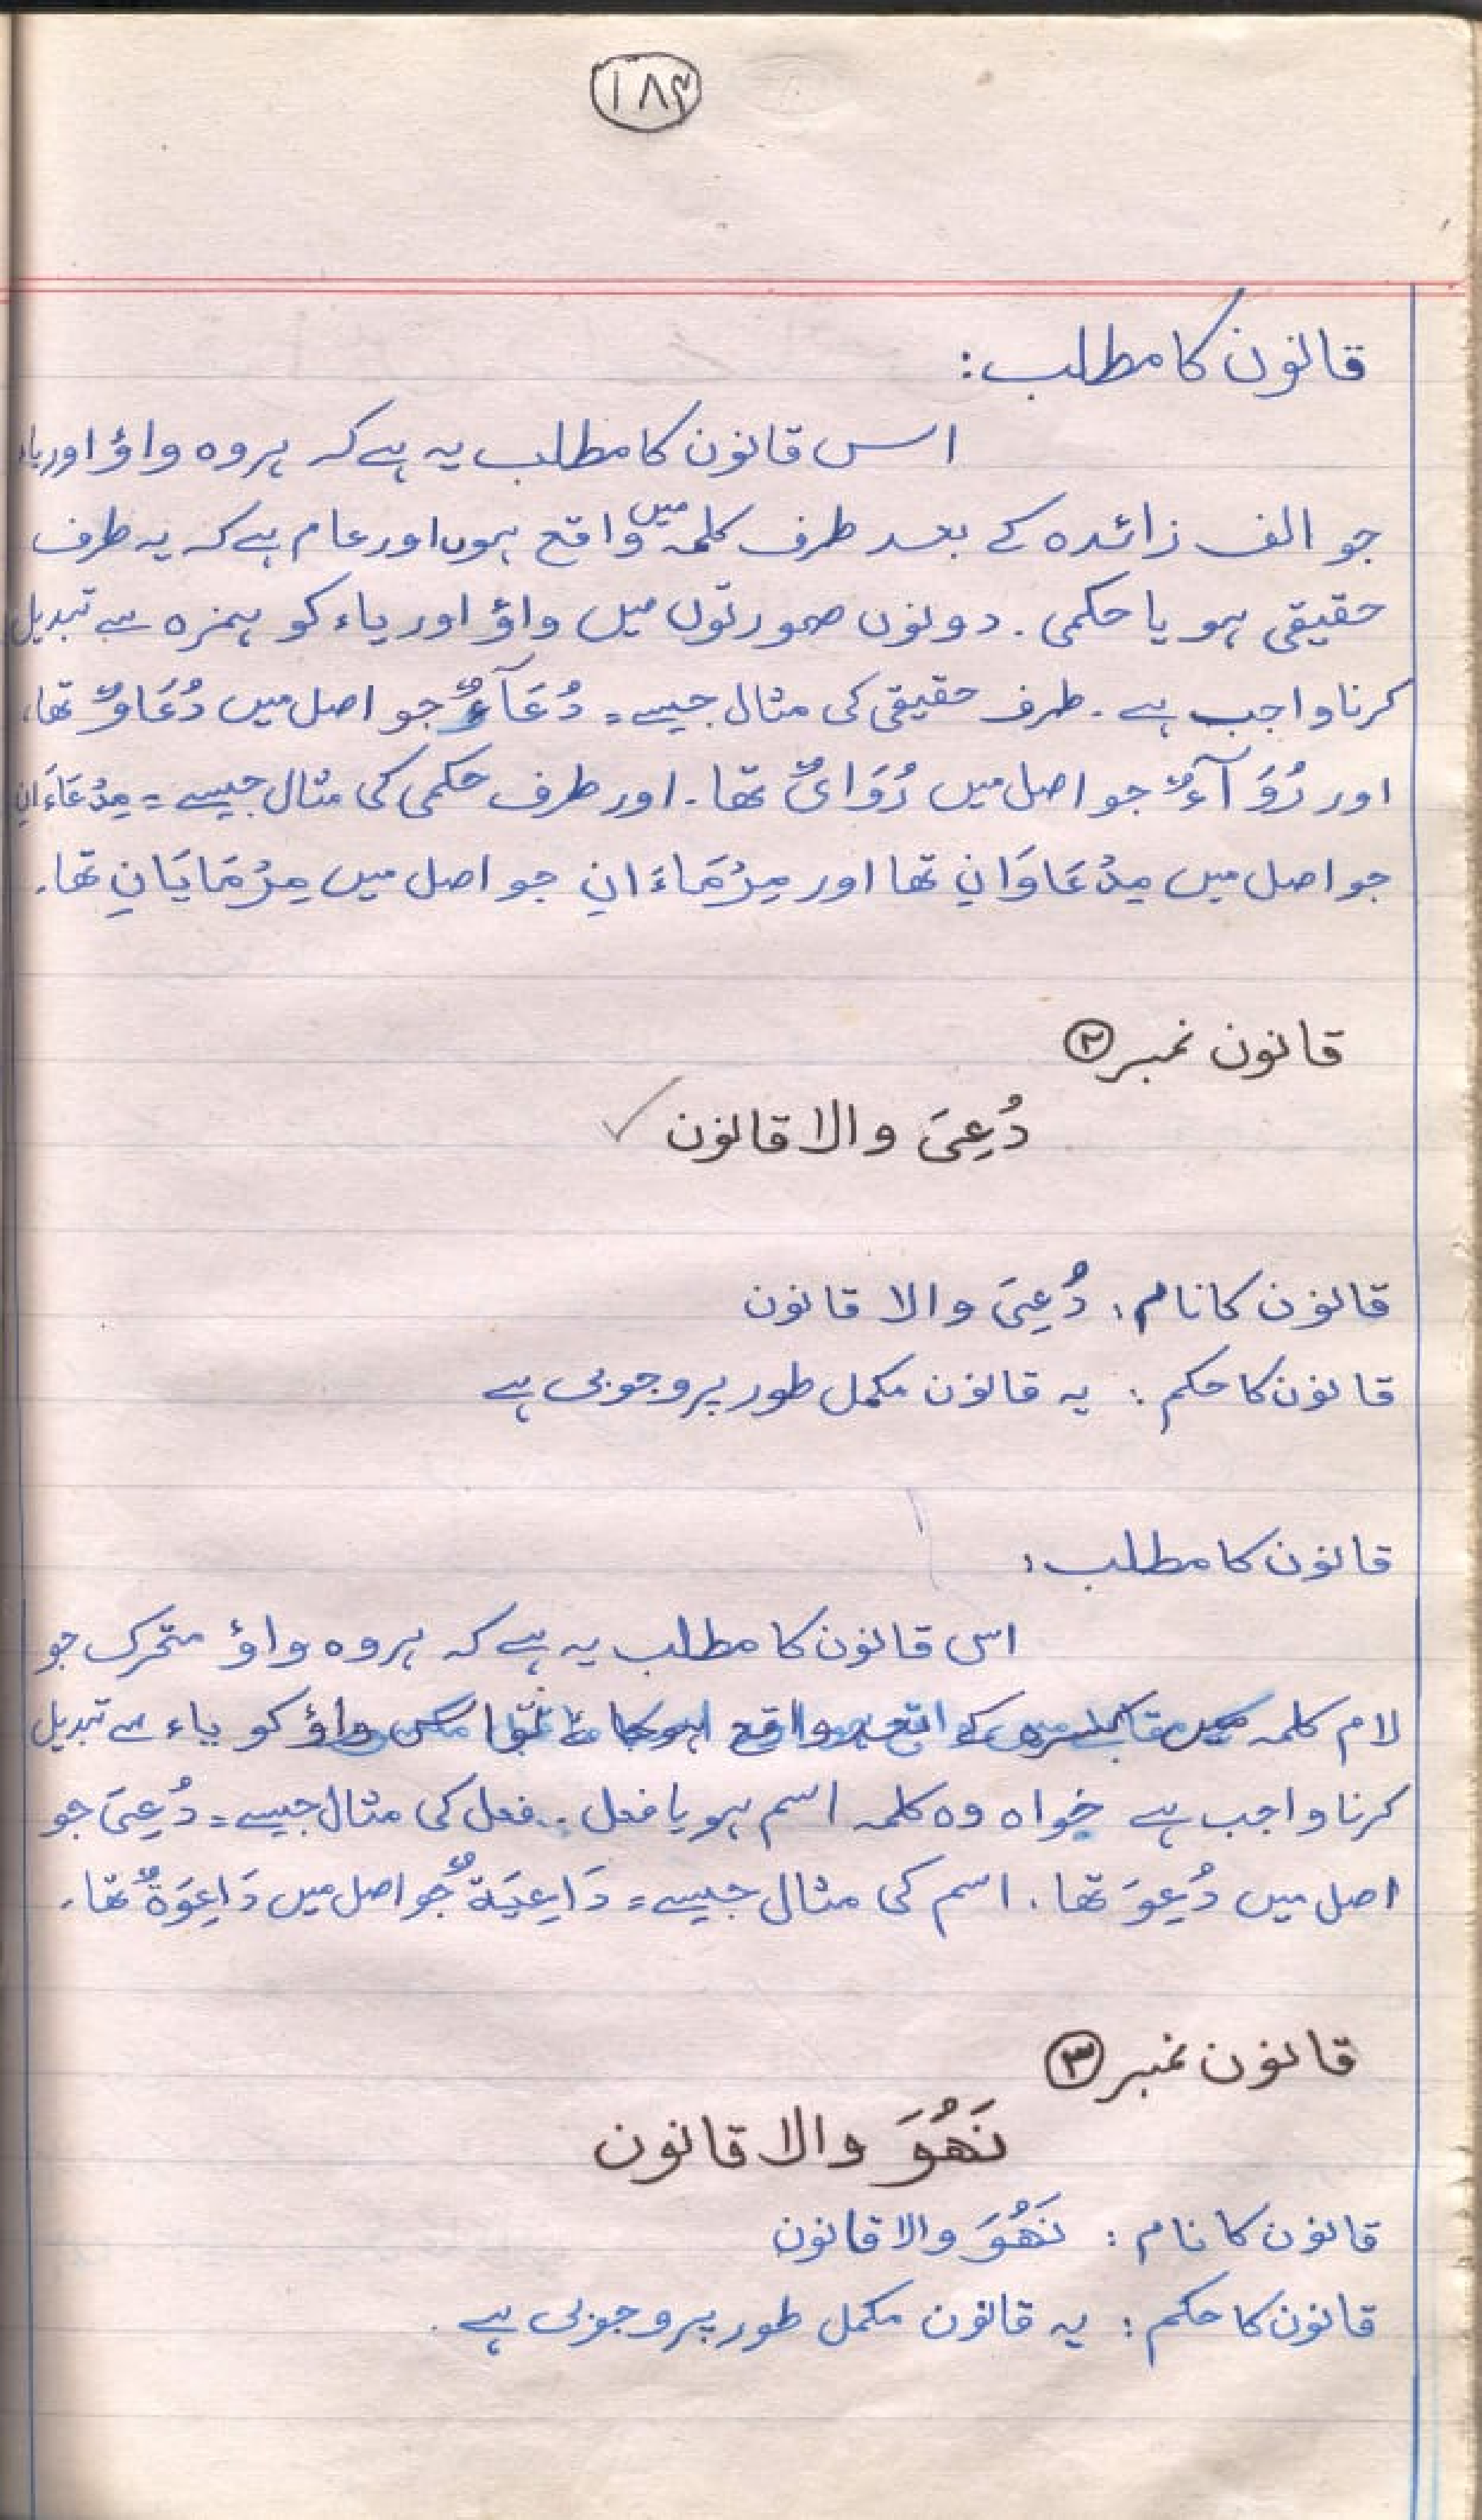 ۱۸۴
قانون کا مطلب:
اس قانون کا مطلب یہ ہے کہ ہر وہ واؤ اور یاء
جو الف زائدہ کے بعد طرف کلمہ میں واقع ہوں اور عام ہے کہ یہ طرف
حقیقی ہو یا حکمی۔ دونوں صورتوں میں واؤ اور یاء کو ہمزہ سے تبدیل
کرنا واجب ہے۔ طرف حقیقی کی مثال جیسے = دُعَآءٌ جو اصل میں دُعَاوٌ تھا،
اور رُوَآءٌ جو اصل میں رُوَایٌ تھا۔ اور طرف حکمی کی مثال جیسے = مِدْعَاءَانِ
جو اصل میں مِدْعَاوَانِ تھا اور مِرْمَاءَانِ جو اصل میں مِرْمَایَانِ تھا۔
قانون نمبر ②
دُعِیَ والا قانون
قانون کا نام: دُعِیَ والا قانون
قانون کا حکم: یہ قانون مکمل طور پر وجوبی ہے
قانون کا مطلب:
اس قانون کا مطلب یہ ہے کہ ہر وہ واؤ متحرک جو
لام کلمہ واؤ کو یاء سے تبدیل
کرنا واجب ہے خواہ وہ کلمہ اسم ہو یا فعل۔ فعل کی مثال جیسے = دُعِیَ جو
اصل میں دُعِوَ تھا۔ اسم کی مثال جیسے = دَاعِیَةٌ جو اصل میں دَاعِوَةٌ تھا۔
قانون نمبر ③
نَهُوَ والا قانون
قانون کا نام: نَهُوَ والا قانون
قانون کا حکم: یہ قانون مکمل طور پر وجوبی ہے۔